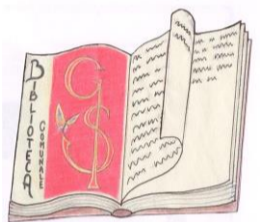 BIBLIOTECA
COMUNALE
GS